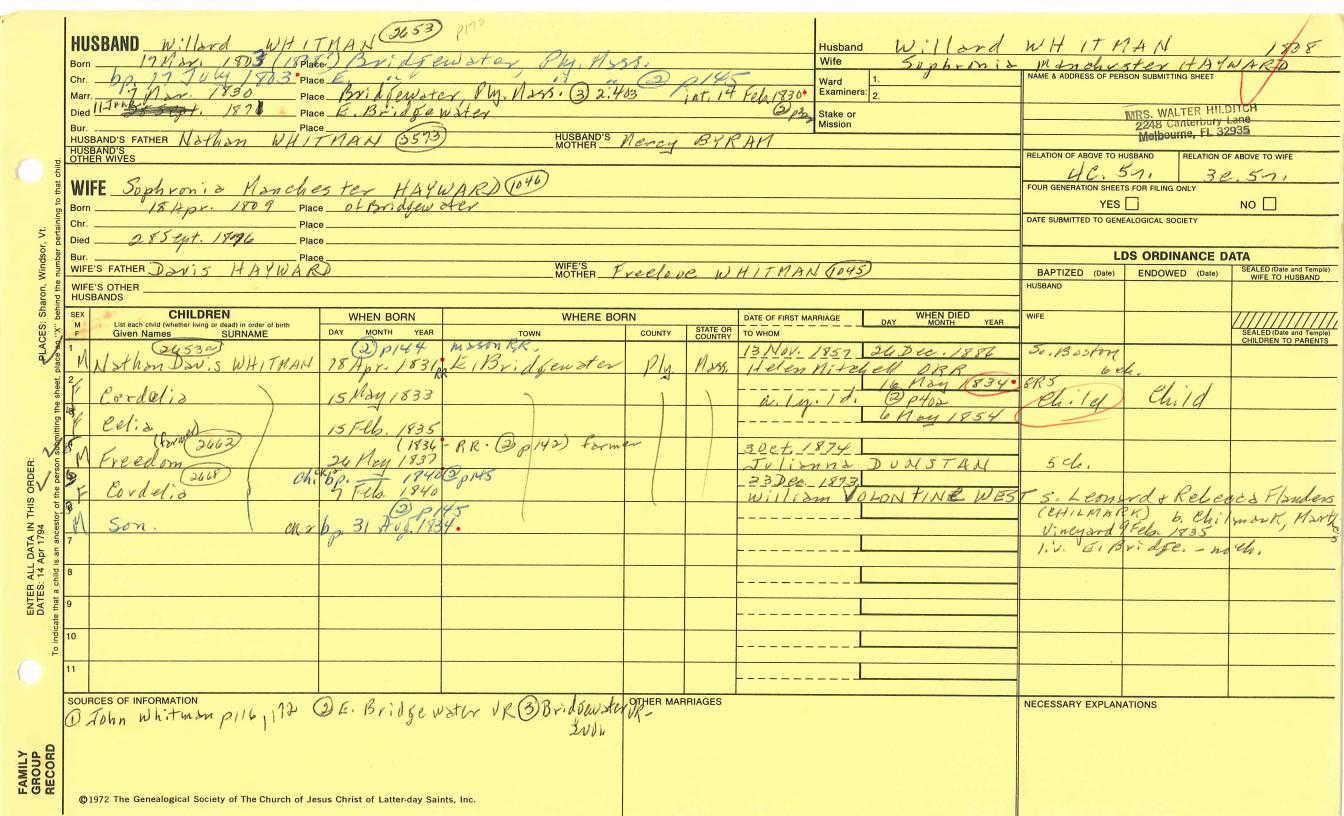 HUSBAND Willard WHITMAN 2653 p172
Born 17 Mar. 1803 Place Bridgewater, Ply. Mass.
Chr. bp. 17 July 1803 Place E. " " " ② p145
Marr. 7 Mar. 1830 Place Bridgewater Ply. Mass. ③ 2:403 int. 14 Feb. 1830
Died 1871 Place E. Bridgewater ②
Bur. Place
HUSBAND'S FATHER Nathan WHITMAN 2573 HUSBAND'S MOTHER Mercy BYRAM
HUSBAND'S OTHER WIVES
WIFE Sophronia Manchester HAYWARD 1046
Born 18 Apr. 1809 Place of Bridgewater
Chr. Place
Died 28 Sept. 1876 Place
Bur. Place
WIFE'S FATHER Davis HAYWARD WIFE'S MOTHER Freelove WHITMAN 1045
WIFE'S OTHER HUSBANDS
Husband Willard WHITMAN 1808
Wife Sophronia Manchester HAYWARD
Ward Examiners: 1.
2.
Stake or Mission
NAME & ADDRESS OF PERSON SUBMITTING SHEET
MRS. WALTER HILDITCH
2248 Canterbury Lane
Melbourne, FL 32935
RELATION OF ABOVE TO HUSBAND RELATION OF ABOVE TO WIFE
4c. 5r. 3c. 5r.
FOUR GENERATION SHEETS FOR FILING ONLY
YES NO
DATE SUBMITTED TO GENEALOGICAL SOCIETY
LDS ORDINANCE DATA
BAPTIZED (Date) ENDOWED (Date) SEALED (Date and Temple) WIFE TO HUSBAND
HUSBAND
WIFE
SEALED (Date and Temple) CHILDREN TO PARENTS
SEX M F
CHILDREN
List each child (whether living or dead) in order of birth
Given Names SURNAME
WHEN BORN
DAY MONTH YEAR
WHERE BORN
TOWN COUNTY STATE OR COUNTRY
DATE OF FIRST MARRIAGE
TO WHOM
WHEN DIED
DAY MONTH YEAR
1 2653a ② p144 mason RR. 13 Nov. 1857 26 Dec. 1886 So. Boston
M Nathan Davis WHITMAN 28 Apr. 1831 E. Bridgewater Ply. Mass. Helen Mitchell ORR 6 ch.
2 16 May 1834 GRS
F Cordelia 15 May 1833 ② p402 Child Child
6 May 1854
F Celia 15 Feb. 1835
(farmer) 2662 (1836 - RR. ② p142) farmer 3 Oct. 1874
M Freedom 26 May 1837 Julianna DUNSTAN 5 ch.
2668 bp. 1840 ② p145 23 Dec. 1873
F Cordelia 7 Feb. 1840 William VOLONTINE WEST s. Leonard & Rebecca Flanders
② p145 (CHILMARK) b. Chilmark, Marth
M Son. chr bp 31 Aug. 1834 Vineyard 9 Feb. 1835
7 liv. E. Bridge. - no ch.
8
9
10
11
SOURCES OF INFORMATION
① John Whitman p116, 172 ② E. Bridgewater VR ③ Bridgewater VR
OTHER MARRIAGES
NECESSARY EXPLANATIONS
©1972 The Genealogical Society of The Church of Jesus Christ of Latter-day Saints, Inc.
FAMILY GROUP RECORD
ENTER ALL DATA IN THIS ORDER:
DATES: 14 Apr 1794
PLACES: Sharon, Windsor, Vt.
To indicate that a child is an ancestor of the person submitting the sheet, place an "X" behind the number pertaining to that child.